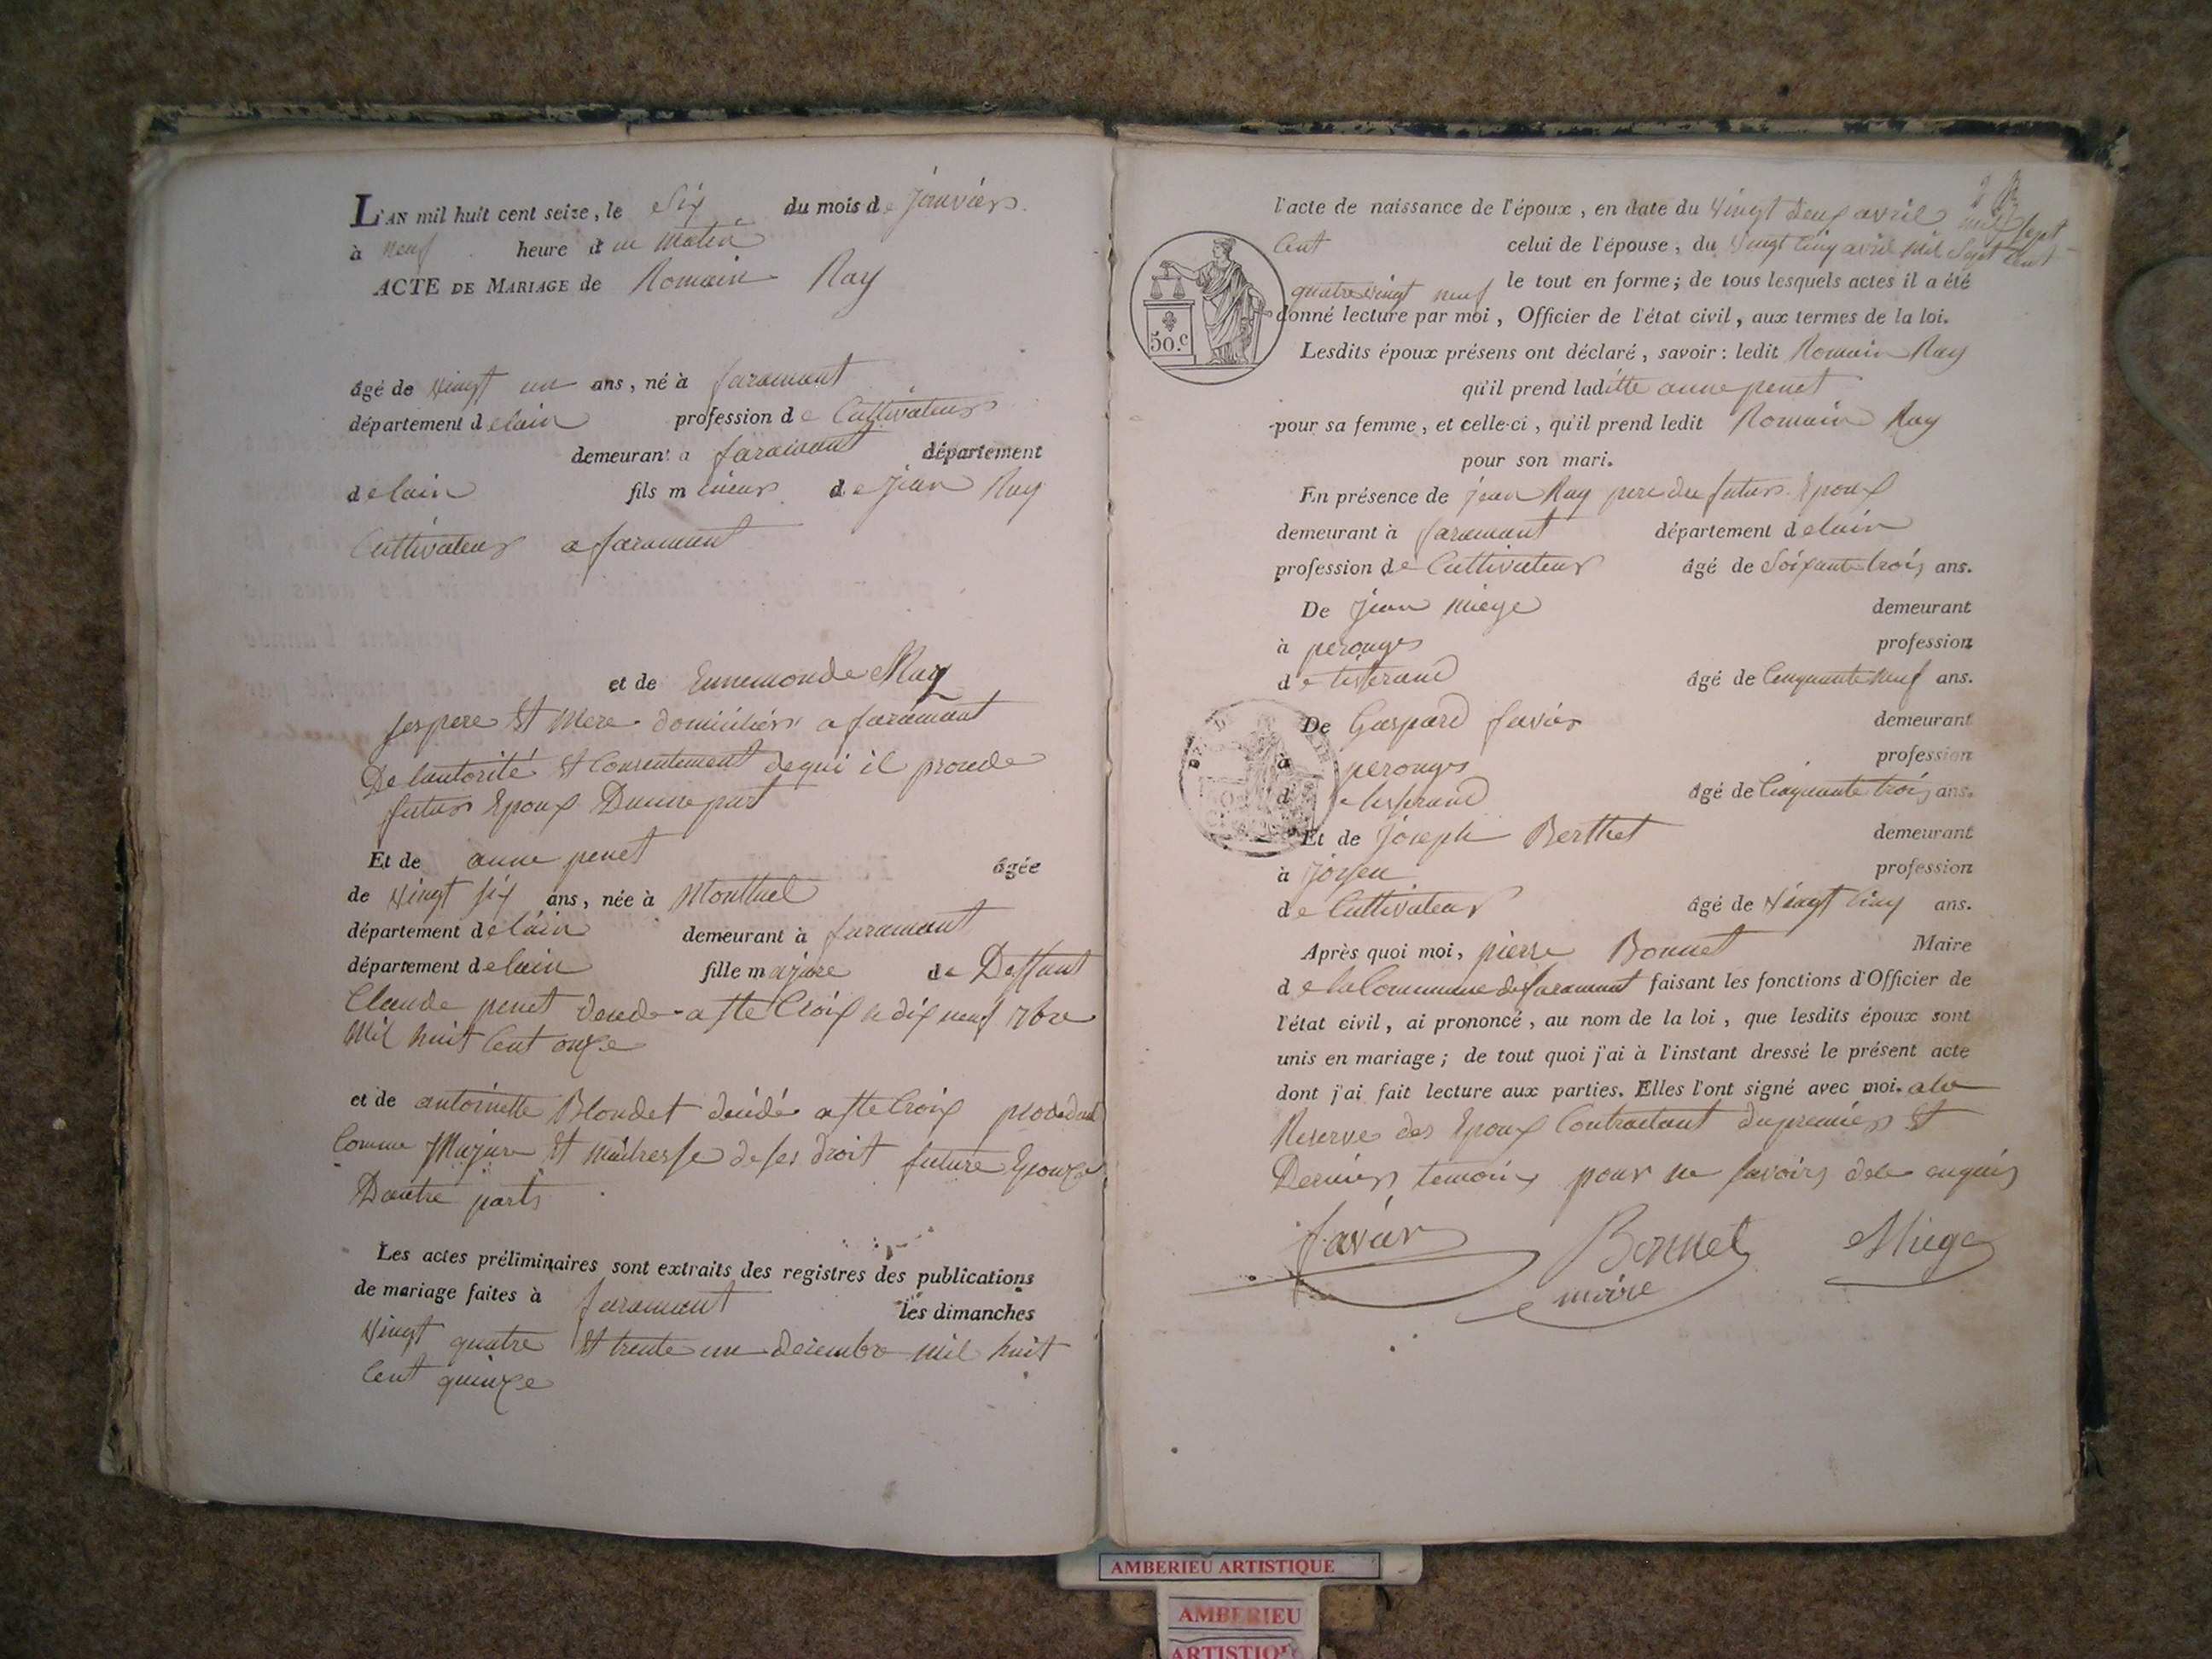 L'AN mil huit cent seize, le Six du mois de janvier
à neuf heure du matin
ACTE DE MARIAGE de Romain Ray
âgé de vingt un ans, né à faramant
département delain profession de Cultivateur
demeurant a faramant département
delain fils mineur de jean Ray
Cultivateur a faramant
et de Ennemonde Ray
ses pere et mere domiciliés a faramant
De lautorité et Consentement dequi il procede
futur Epoux Dunne part
Et de anne penet âgée
de vingt six ans, née à Montluel
département delain demeurant à faramant
département delain fille majure de Deffunt
Claude penet décédé a ste Croix le dix neuf 7bre
Mil huit Cent onze
et de antoinette Blondet décédé a ste Croix procedant
Comme Majure et maitresse de ses droit future Epouze
Dautre parts
Les actes préliminaires sont extraits des registres des publications
de mariage faites à faramant les dimanches
vingt quatre et trente un decembre mil huit
Cent quinze
l'acte de naissance de l'époux, en date du vingt deux avril mil sept
Cent celui de l'épouse, du vingt cinq avril mil sept Cent
quatre vingt neuf le tout en forme; de tous lesquels actes il a été
donné lecture par moi, Officier de l'état civil, aux termes de la loi.
50.c
Lesdits époux présens ont déclaré, savoir: ledit Romain Ray
qu'il prend laditte anne penet
pour sa femme, et celle-ci, qu'il prend ledit Romain Ray
pour son mari.
En présence de jean Ray pere du futur Epoux
demeurant à faramant département delain
profession de Cultivateur âgé de Soixante trois ans.
De jean miege demeurant
à perouges profession
de tisserand âgé de Cinquante neuf ans.
De Gaspard favier demeurant
à perouges profession
de tisserand âgé de Cinquante trois ans.
Et de joseph Berthet demeurant
à joyeu profession
de Cultivateur âgé de vingt Cinq ans.
Après quoi moi, pierre Bonnet Maire
de la Commune de faramant faisant les fonctions d'Officier de
l'état civil, ai prononcé, au nom de la loi, que lesdits époux sont
unis en mariage; de tout quoi j'ai à l'instant dressé le présent acte
dont j'ai fait lecture aux parties. Elles l'ont signé avec moi. ala
Reserve des Epoux Contractant du premier et
Dernier temoins pour ne savoir de ce enquis
favier Bonnet Miege
maire
AMBERIEU ARTISTIQUE
AMBERIEU